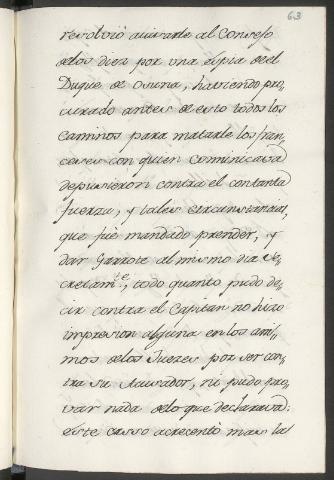 63
resolvió avisarle al Consejo
de los diez por una espia del
Duque de Osuna, haviendo pro-
curado antes de esto todos los
caminos para matarle los fran-
ceses con quien cominicava
depussieron contra el con tanta
fuerza, y tales circunstancias,
que fuè mandado prender, y
dar Garrote al mismo dia se-
cretamte, todo quanto pudo de-
cir contra el Capitan no hizo
impresion alguna en los ani-
mos de los Juezes por ser con-
tra su salvador, ni pudo pro-
var nada de lo que declarava:
este casso acrecentò mas la